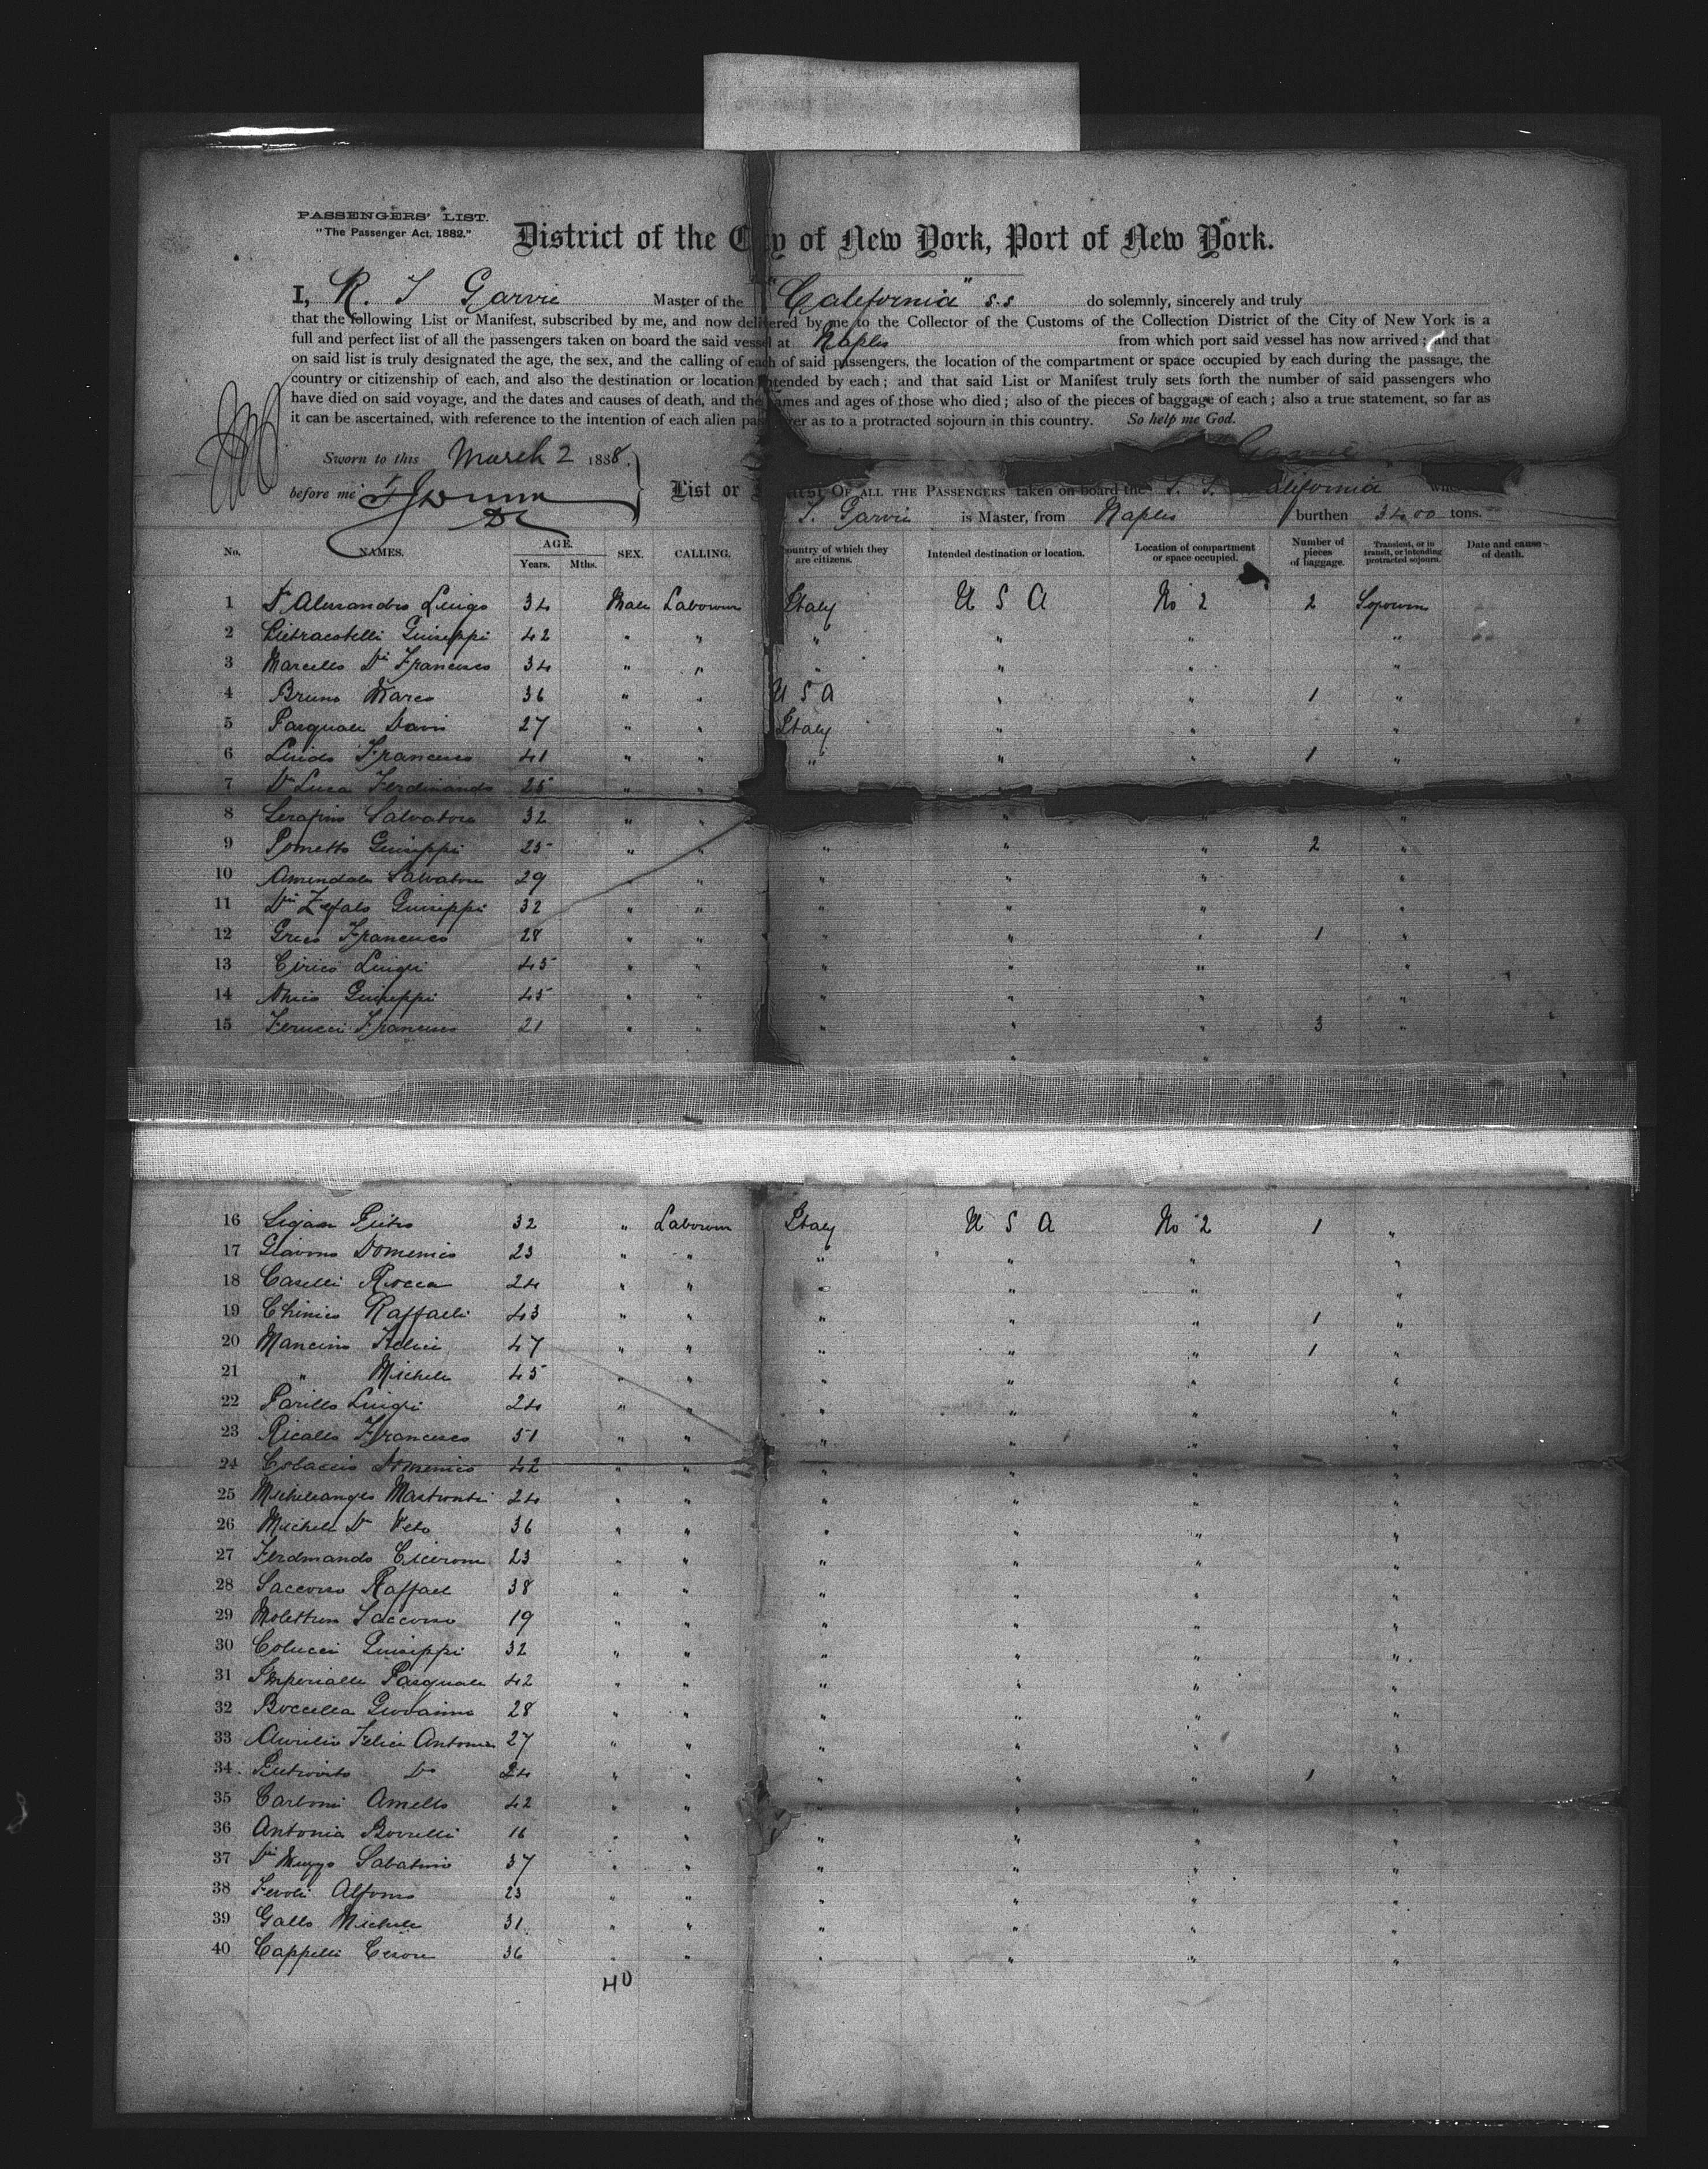 PASSENGERS' LIST.
"The Passenger Act, 1882."
District of the City of New York, Port of New York.
I, R. J Garvie Master of the "California" S.S do solemnly, sincerely and truly
that the following List or Manifest, subscribed by me, and now delivered by me to the Collector of the Customs of the Collection District of the City of New York is a
full and perfect list of all the passengers taken on board the said vessel at Naples from which port said vessel has now arrived; and that
on said list is truly designated the age, the sex, and the calling of each of said passengers, the location of the compartment or space occupied by each during the passage, the
country or citizenship of each, and also the destination or location intended by each; and that said List or Manifest truly sets forth the number of said passengers who
have died on said voyage, and the dates and causes of death, and the names and ages of those who died; also of the pieces of baggage of each; also a true statement, so far as
it can be ascertained, with reference to the intention of each alien passenger as to a protracted sojourn in this country. So help me God.
Sworn to this March 2 1888. Garvie
before me
List or OF ALL THE PASSENGERS taken on board the S. S. California
J. Garvie is Master, from Naples burthen 3400 tons.
No. NAMES. AGE. Years. Mths. SEX. CALLING. Country of which they are citizens. Intended destination or location. Location of compartment or space occupied. Number of pieces of baggage. Transient, or in transit, or intending protracted sojourn. Date and cause of death.
1 Di Alessandro Luigo 34 Male Labourer Italy U S A No 2 2 Sojourn
2 Pietracatelli Guiseppi 42 " " " " " "
3 Marcello Di Francesco 34 " " " " " "
4 Bruno Marco 36 " " U S A " " 1 "
5 Pasquale Davis 27 " " Italy " " "
6 Guido Francesco 41 " " " " " 1 "
7 De Luca Ferdinando 25 " "
8 Serafino Salvatore 32 " " " " "
9 Pometto Guiseppi 25 " " " " " 2 "
10 Amendala Salvatore 29 " " " " " "
11 Di Zefalo Guiseppi 32 " " " " " "
12 Greco Francesco 28 " " " " " 1 "
13 Cirico Luigi 45 " " " " " "
14 Guiseppi 45 " " " " " "
15 Ferucci Francesco 21 " " " " " 3 "
" "
16 Pietro 32 " Labourer Italy U S A No 2 1 "
17 Domenico 23 " " " " " "
18 Caselli Rocca 24 " " " " " "
19 Chinico Raffaeli 43 " " " " " 1 "
20 Mancino Felici 47 " " " " " 1 "
21 " Michele 45 " " " " " "
22 Parillo Luigi 24 " " " " " "
23 Ricallo Francesco 51 " " " " " "
24 Colaccio Domenico 42 " " " " " "
25 Micheleangelo Mastronti 24 " " " " " "
26 Michele De Veto 36 " " " " " "
27 Ferdinando Cicerone 23 " " " " " "
28 Saccorso Raffael 38 " " " " " "
29 Saccorso 19 " " " " " "
30 Colucci Guiseppi 32 " " " " " "
31 Imperialle Pasquale 42 " " " " " "
32 Boccella Giovanni 28 " " " " " "
33 Aurilio Felice Antonio 27 " " " " " "
34 Pietrovito Do 24 " " " " " 1 "
35 Carboni Amello 42 " " " " " "
36 Antonia Borrelli 16 " " " " " "
37 Di Muzzo Sabatino 37 " " " " " "
38 Alfonso 23 " " " " " "
39 Gallo Michele 31 " " " " " "
40 Cappelli Cesore 36 " " " " " "
40